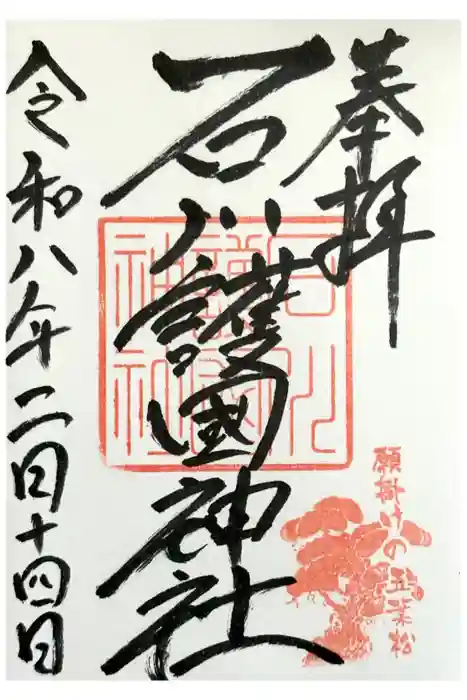 奉拝
石川護國神社
令和八年二月十四日
石川護國神社
願掛けの五葉松